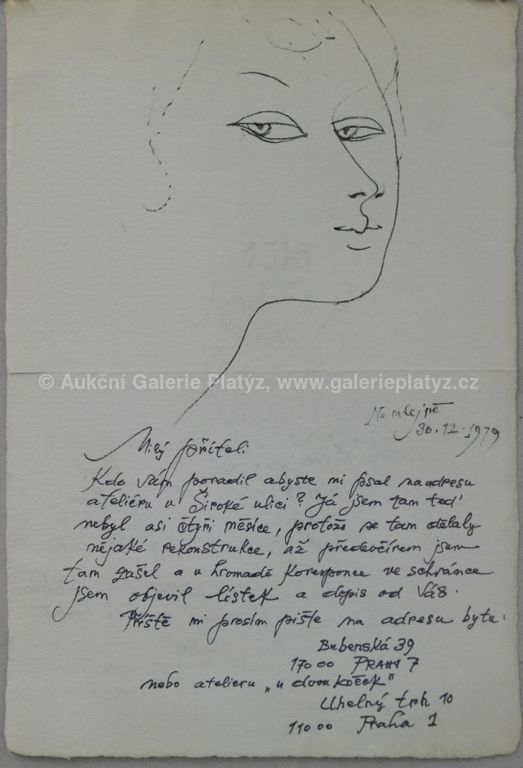 © Aukční Galerie Platýz, www.galerieplatyz.cz
Na mlejně
30.12.1979
Milý příteli
Kdo Vám poradil abyste mi psal na adresu
ateliéru v Široké ulici? Já jsem tam teď
nebyl asi čtyři měsíce, protože se tam dělaly
nějaké rekonstrukce, až předevčírem jsem
tam zašel a v hromadě koresponce ve schránce
jsem objevil lístek a dopis od Vás.
Příště mi prosím pište na adresu bytu:
Bubenská 39
170 00 PRAHA 7
nebo atelieru „u dvou koček"
Uhelný trh 10
110 00 Praha 1